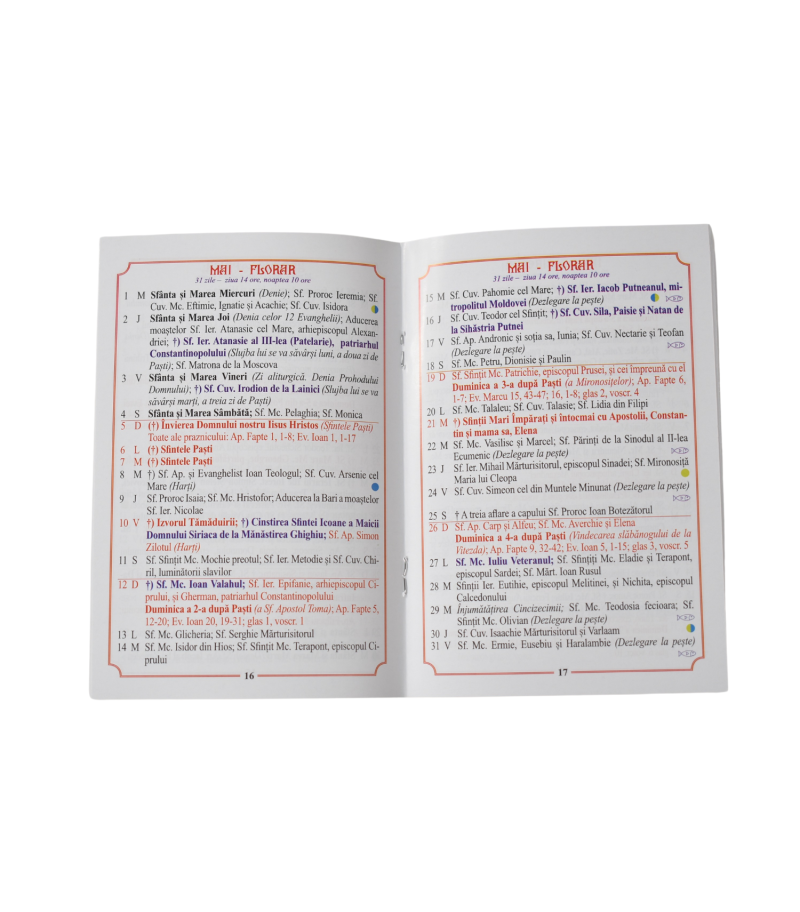 MAI - FLORAR
31 zile – ziua 14 ore, noaptea 10 ore
1 M Sfânta și Marea Miercuri (Denie); Sf. Proroc Ieremia; Sf.
Cuv. Mc. Eftimie, Ignatie și Acachie; Sf. Cuv. Isidora
2 J Sfânta și Marea Joi (Denia celor 12 Evanghelii); Aducerea
moaștelor Sf. Ier. Atanasie cel Mare, arhiepiscopul Alexan-
driei; †) Sf. Ier. Atanasie al III-lea (Patelarie), patriarhul
Constantinopolului (Slujba lui se va săvârși luni, a doua zi de
Paști); Sf. Matrona de la Moscova
3 V Sfânta și Marea Vineri (Zi aliturgică. Denia Prohodului
Domnului); †) Sf. Cuv. Irodion de la Lainici (Slujba lui se va
săvârși marți, a treia zi de Paști)
4 S Sfânta și Marea Sâmbătă; Sf. Mc. Pelaghia; Sf. Monica
5 D (†) Învierea Domnului nostru Iisus Hristos (Sfintele Paști)
Toate ale praznicului: Ap. Fapte 1, 1-8; Ev. Ioan 1, 1-17
6 L (†) Sfintele Paști
7 M (†) Sfintele Paști
8 M †) Sf. Ap. și Evanghelist Ioan Teologul; Sf. Cuv. Arsenic cel
Mare (Harți)
9 J Sf. Proroc Isaia; Sf. Mc. Hristofor; Aducerea la Bari a moaștelor
Sf. Ier. Nicolae
10 V †) Izvorul Tămăduirii; †) Cinstirea Sfintei Icoane a Maicii
Domnului Siriaca de la Mănăstirea Ghighiu; Sf. Ap. Simon
Zilotul (Harți)
11 S Sf. Sfințit Mc. Mochie preotul; Sf. Ier. Metodie și Sf. Cuv. Chi-
ril, luminătorii slavilor
12 D †) Sf. Mc. Ioan Valahul; Sf. Ier. Epifanie, arhiepiscopul Ci-
prului, și Gherman, patriarhul Constantinopolului
Duminica a 2-a după Paști (a Sf. Apostol Toma); Ap. Fapte 5,
12-20; Ev. Ioan 20, 19-31; glas 1, voscr. 1
13 L Sf. Mc. Glicheria; Sf. Serghie Mărturisitorul
14 M Sf. Mc. Isidor din Hios; Sf. Sfințit Mc. Terapont, episcopul Ci-
prului
16
MAI - FLORAR
31 zile – ziua 14 ore, noaptea 10 ore
15 M Sf. Cuv. Pahomie cel Mare; †) Sf. Ier. Iacob Putneanul, mi-
tropolitul Moldovei (Dezlegare la pește)
16 J Sf. Cuv. Teodor cel Sfințit; †) Sf. Cuv. Sila, Paisie și Natan de
la Sihăstria Putnei
17 V Sf. Ap. Andronic și soția sa, Iunia; Sf. Cuv. Nectarie și Teofan
(Dezlegare la pește)
18 S Sf. Mc. Petru, Dionisie și Paulin
19 D Sf. Sfințit Mc. Patrichie, episcopul Prusei, și cei împreună cu el
Duminica a 3-a după Paști (a Mironosițelor); Ap. Fapte 6,
1-7; Ev. Marcu 15, 43-47; 16, 1-8; glas 2, voscr. 4
20 L Sf. Mc. Talaleu; Sf. Cuv. Talasie; Sf. Lidia din Filipi
21 M †) Sfinții Mari Împărați și întocmai cu Apostolii, Constan-
tin și mama sa, Elena
22 M Sf. Mc. Vasilisc și Marcel; Sf. Părinți de la Sinodul al II-lea
Ecumenic (Dezlegare la pește)
23 J Sf. Ier. Mihail Mărturisitorul, episcopul Sinadei; Sf. Mironosiță
Maria lui Cleopa
24 V Sf. Cuv. Simeon cel din Muntele Minunat (Dezlegare la pește)
25 S † A treia aflare a capului Sf. Proroc Ioan Botezătorul
26 D Sf. Ap. Carp și Alfeu; Sf. Mc. Averchie și Elena
Duminica a 4-a după Paști (Vindecarea slăbănogului de la
Vitezda); Ap. Fapte 9, 32-42; Ev. Ioan 5, 1-15; glas 3, voscr. 5
27 L Sf. Mc. Iuliu Veteranul; Sf. Sfințiți Mc. Eladie și Terapont,
episcopul Sardei; Sf. Mărt. Ioan Rusul
28 M Sfinții Ier. Eutihie, episcopul Melitinei, și Nichita, episcopul
Calcedonului
29 M Înjumătățirea Cincizecimii; Sf. Mc. Teodosia fecioara; Sf.
Sfințit Mc. Olivian (Dezlegare la pește)
30 J Sf. Cuv. Isaachie Mărturisitorul și Varlaam
31 V Sf. Mc. Ermie, Eusebiu și Haralambie (Dezlegare la pește)
17